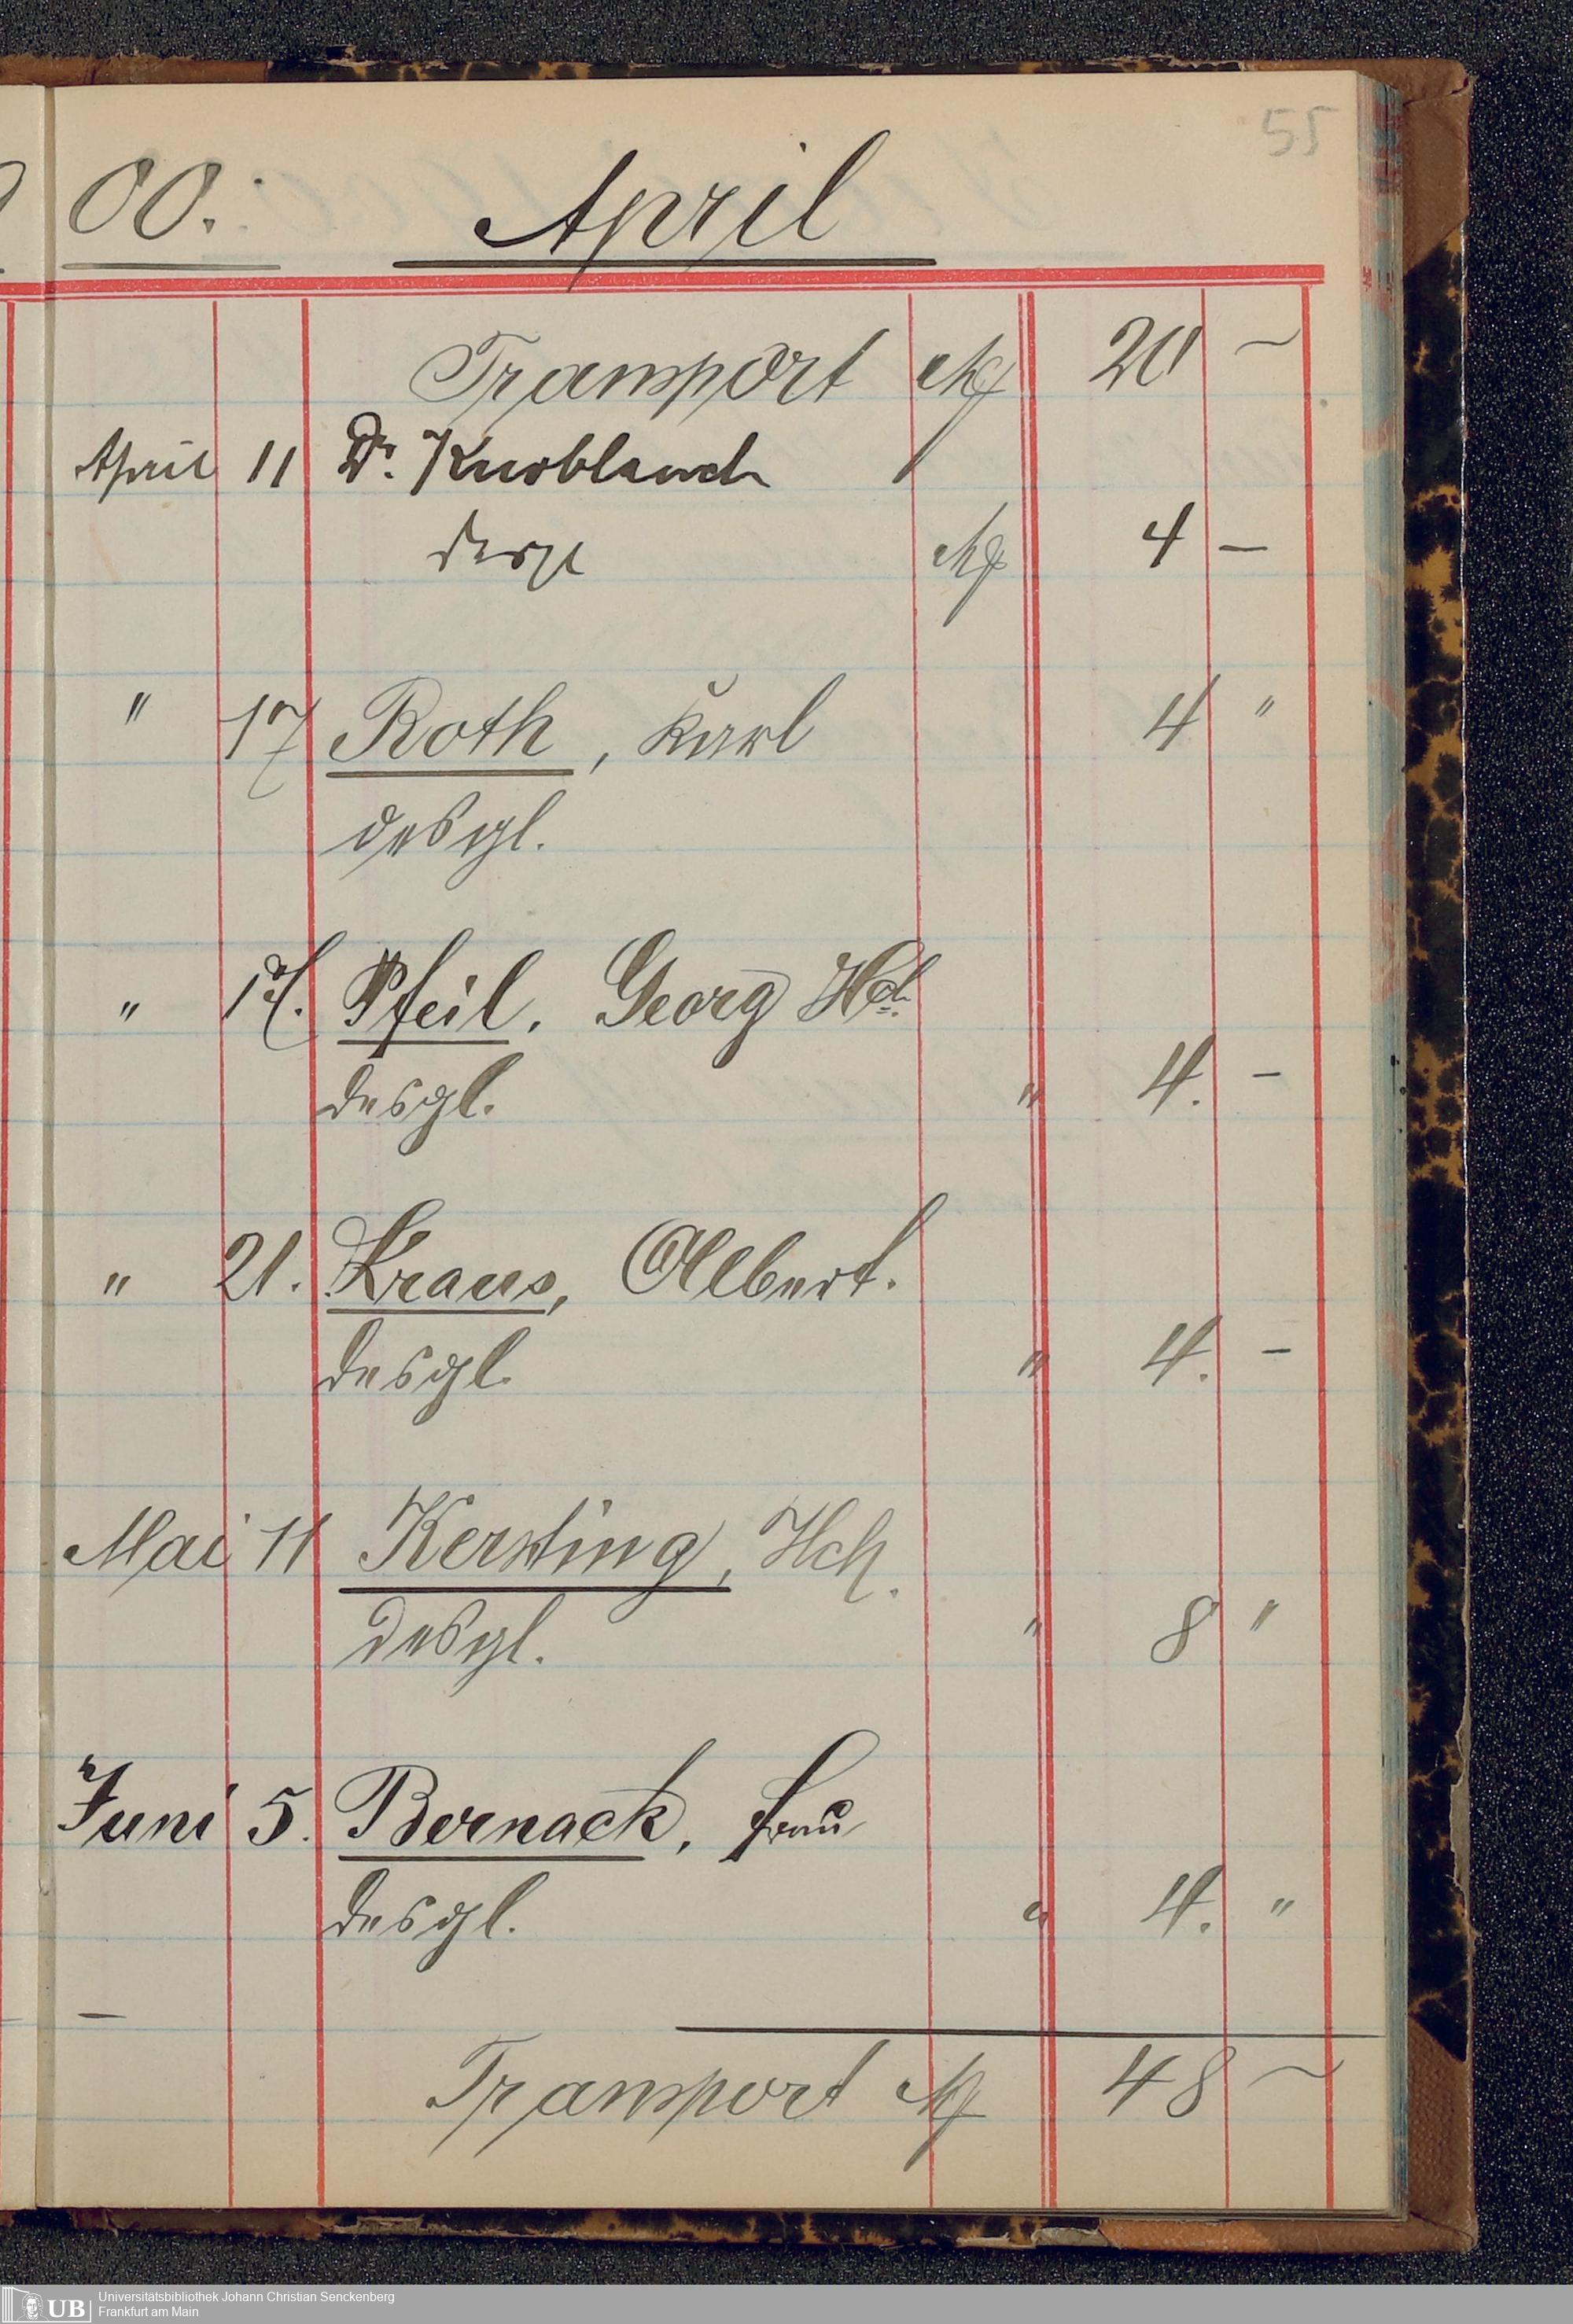 55
00. April
Transport M 20 —
April 11 Dr. Knoblauch
desgl M 4 —
" 17 Roth, Karl 4 "
desgl.
" 17. Pfeil, Georg Hch.
desgl. " 4. —
" 21. Kraus, Albert.
desgl. " 4. —
Mai 11 Kersting, Hch.
desgl. " 8 "
Juni 5. Bernack, Frau
desgl. " 4. "
—
Transport M 48 —
UB Universitätsbibliothek Johann Christian Senckenberg
Frankfurt am Main